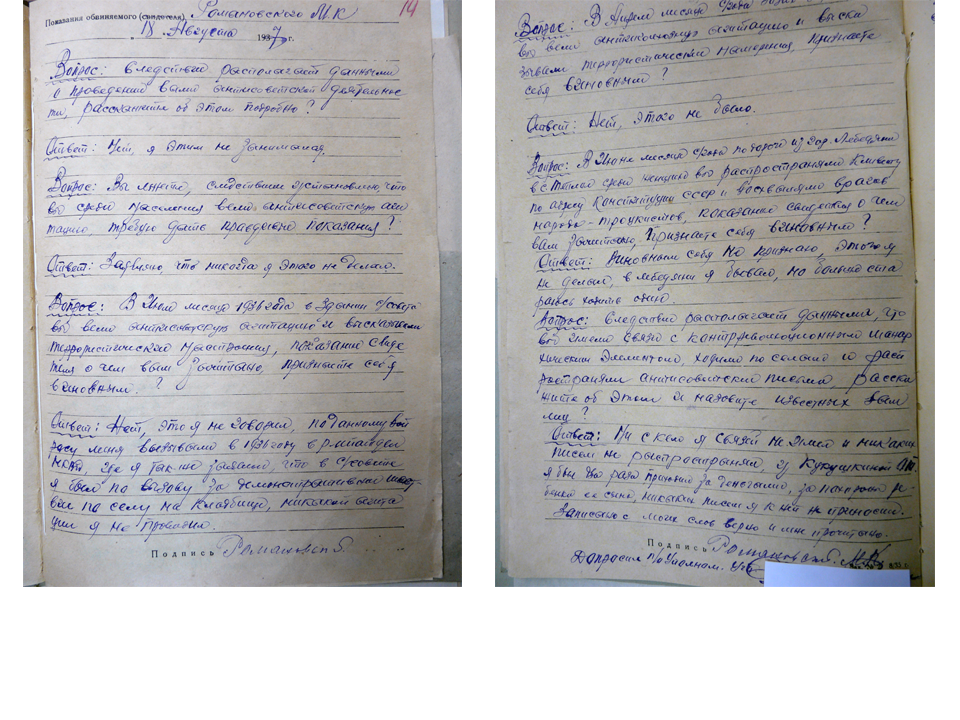 Показания обвиняемого (свидетеля) Романовского М.К
14
Августа 1937 г.
Вопрос: Следствие располагает данными
о проведении вами антисоветской деятельнос
ти, расскажите об этом подробно?
Ответ: Нет, я этим не занимался.
Вопрос: Вы лжете, следствием установлено, что
вы среди населения вели антисоветскую аги
тацию требую дать правдивые показания?
Ответ: Заявляю, что никогда я этого не делал.
Вопрос: В Июле месяце 1936 года в здании с/совета
вы вели антисоветскую агитацию и высказывали
террористические настроения, показание свиде
теля о чем вам зачитано, признаете себя
виновным?
Ответ: Нет, это я не говорил, по данному воп
росу меня вызывали в 1936 году в
где я так же заявил, что в с/совете
я был по вызову за демонстративный
по селу на кладбище, никакой агита
ции я не проводил.
Подпись Романовский
Вопрос: В Апреле месяце среди
вы вели антиколхозную агитацию и выска
зывали террористические намерения, признаете
себя виновным?
Ответ: Нет, этого не было.
Вопрос: В Июне месяце по дороге из гор. Лебедяни
в с. среди женщин вы распространяли клевету
по адресу Конституции СССР и восхваляли врагов
народа - троцкистов, показание свидетеля о чем
вам зачитано, признаете себя виновным?
Ответ: Виновным себя не признаю, этого я
не делал, в Лебедяни я бывал, но больше ста
рался ходить один.
Вопрос: Следствие располагает данными, что
вы имели связи с контрреволюционным монар
хическим элементом, ходили по селам и расп
ространяли антисоветские письма, расска
жите об этом и назовите известных вам
лиц?
Ответ: Ни с кем я связей не имел и никаких
писем не распространял, у Кукушкиной
я был два раза приходил за деньгами, за
ее сына, никаких писем я к ней не приносил.
Записано с моих слов верно и мне прочитано.
Подпись Романовский М.К
Допросил